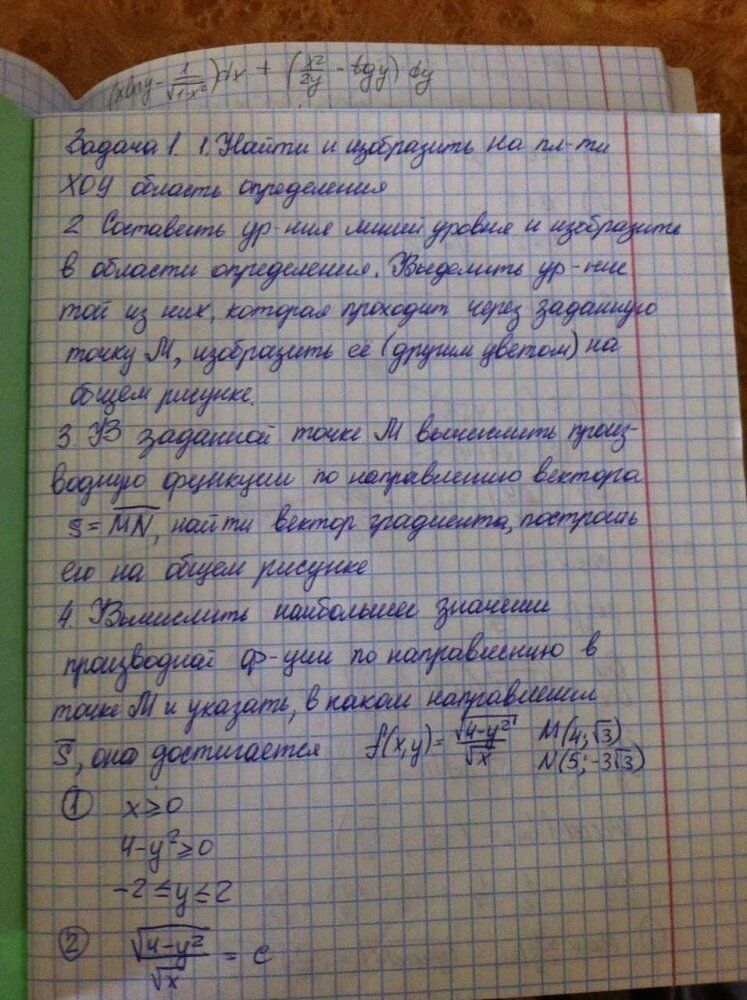 (xlny - 1/√(1-x²))dx + (x²/2y - tgy) dy
Задача 1. 1. Найти и изобразить на пл-ти
XOY область определения
2. Составить ур-ния линий уровня и изобразить
в области определения. Выделить ур-ние
той из них, которая проходит через заданную
точку M, изобразить её (другим цветом) на
общем рисунке.
3. В заданной точке M вычислить произ-
водную функции по направлению вектора
s = MN, найти вектор градиента, построить
его на общем рисунке
4. Вычислить наибольшее значение
производной ф-ции по направлению в
точке M и указать, в каком направлении
s̅, она достигается f(x,y) = √(4-y²)/√x M(4;√3)
N(5;-3√3)
① x ≥ 0
4-y² ≥ 0
-2 ≤ y ≤ 2
② √(4-y²)/√x = c